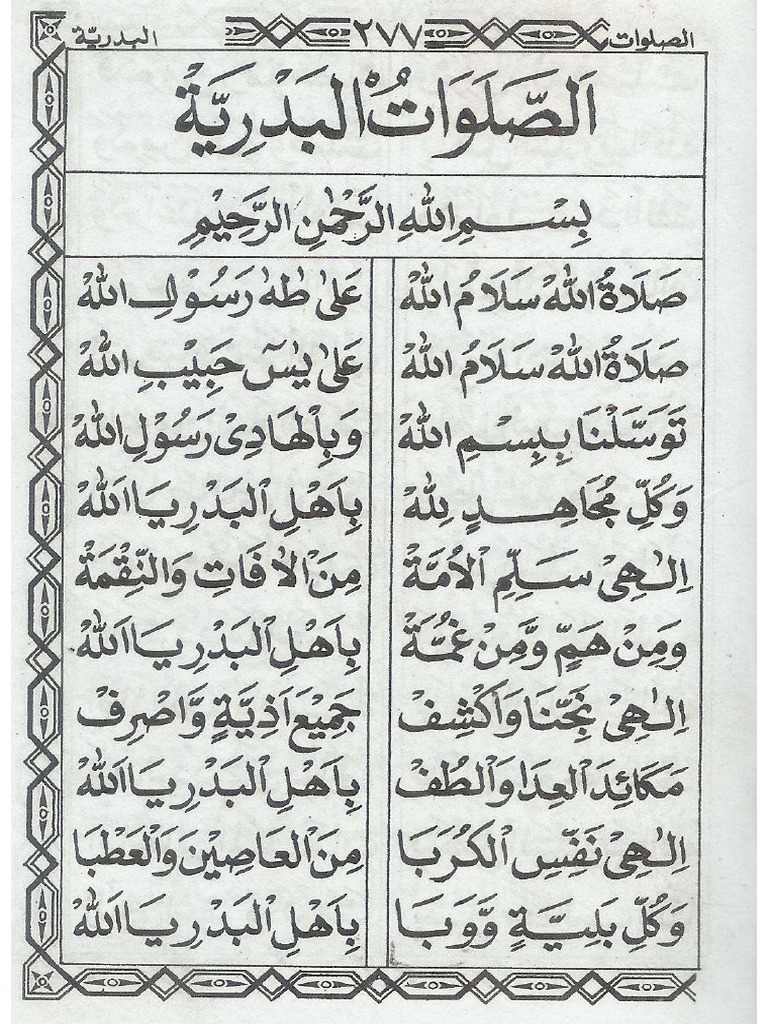 الصلوات ٢٧٧ البدرية
اَلصَّلَوَاتُ الْبَدْرِيَّةْ
بِسْمِ اللهِ الرَّحْمٰنِ الرَّحِيْمِ
صَلَاةُ اللهْ سَلَامُ اللهْ عَلَىٰ طٰهٰ رَسُوْلِ اللهْ
صَلَاةُ اللهْ سَلَامُ اللهْ عَلَىٰ يٰسٓ حَبِيْبِ اللهْ
تَوَسَّلْنَا بِبِسْمِ اللهْ وَبِالْهَادِىْ رَسُوْلِ اللهْ
وَكُلِّ مُجَاهِدٍ لِلهْ بِاَهْلِ الْبَدْرِ يَا اَللهْ
اِلٰهِىْ سَلِّمِ الْاُمَّةْ مِنَ الْاٰفَاتِ وَالنِّقْمَةْ
وَمِنْ هَمٍّ وَّمِنْ غُمَّةْ بِاَهْلِ الْبَدْرِ يَا اَللهْ
اِلٰهِىْ نَجِّنَا وَاكْشِفْ جَمِيْعَ اَذِيَّةٍ وَّاصْرِفْ
مَكَائِدَ الْعِدَا وَالْطُفْ بِاَهْلِ الْبَدْرِ يَا اَللهْ
اِلٰهِىْ نَفِّسِ الْكُرَبَا مِنَ الْعَاصِيْنَ وَالْعَطْبَا
وَكُلِّ بَلِيَّةٍ وَّوَبَا بِاَهْلِ الْبَدْرِ يَا اَللهْ